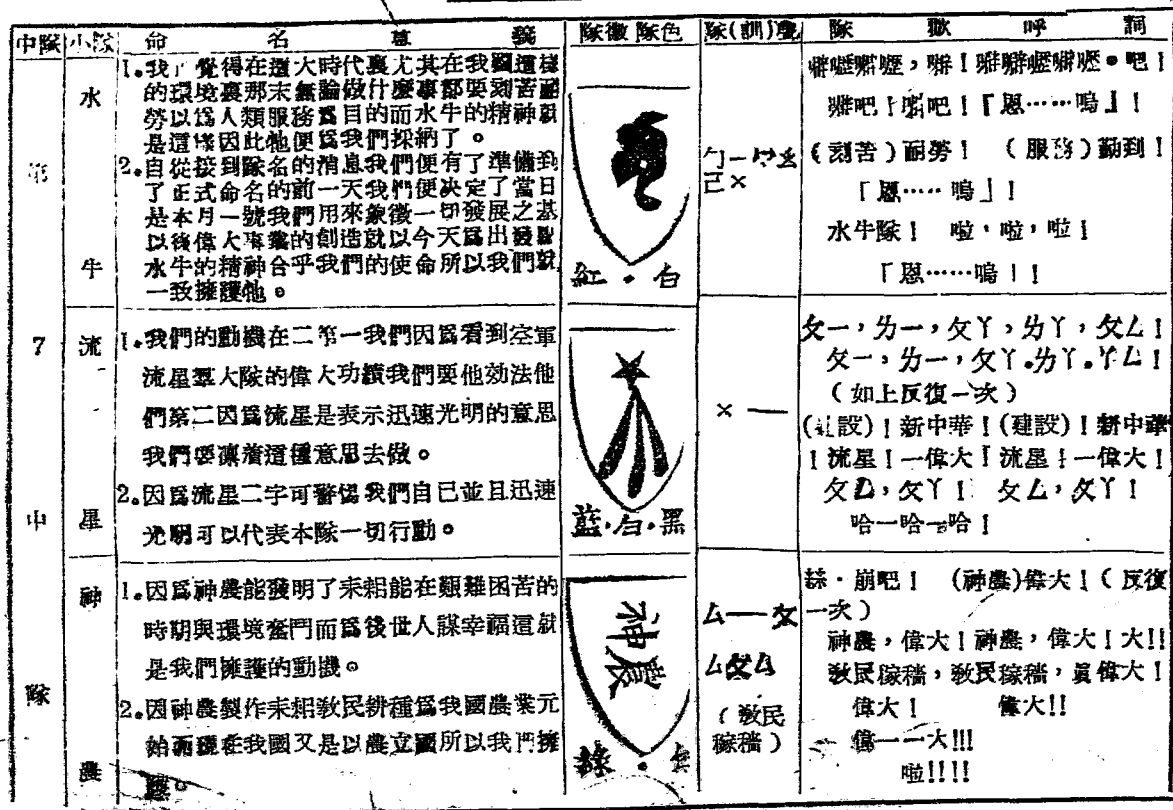 中隊 小隊 命名意義 隊徽 隊色 隊(訓)聲 隊歡呼詞
第 7 中 隊
水 牛
1.我們覺得在這大時代裏尤其在我國這樣
的環境裏那末無論做什麼事都要刻苦耐
勞以爲人類服務爲目的而水牛的精神就
是這樣因此牠便爲我們採納了。
2.自從接到隊名的消息我們便有了準備到
了正式命名的前一天我們便決定了當日
是本月一號我們用來象徵一切發展之基
以後偉大事業的創造就以今天爲出發點
水牛的精神合乎我們的使命所以我們就
一致擁護牠。
紅・白
ㄅ一
ㄗㄠ
ㄍㄨ
(刻苦)耐勞! (服務)勤到!
「恩……嗚」!
水牛隊! 啦,啦,啦!
「恩……嗚」!
流 星
1.我們的動機在二第一我們因爲看到空軍
流星羣大隊的偉大功績我們要他効法他
們第二因爲流星是表示迅速光明的意思
我們要稟着這種意思去做。
2.因爲流星二字可警惕我們自已並且迅速
光明可以代表本隊一切行動。
藍・白・黑
× —
ㄆ一,ㄌ一,ㄆㄚ,ㄌㄚ,ㄆㄥ!
ㄆ一,ㄌ一,ㄆㄚ.ㄌㄚ.ㄆㄥ!
(如上反復一次)
(建設)!新中華!(建設)!新中華
!流星!一偉大!流星!一偉大!
ㄆㄥ,ㄆㄚ! ㄆㄥ,ㄆㄚ!
哈一哈一哈!
神 農
1.因爲神農能發明了耒耜能在艱難困苦的
時期與環境奮鬥而爲後世人謀幸福這就
是我們擁護的動機。
2.因神農製作耒耜敎民耕種爲我國農業元
始而現在我國又是以農立國所以我們擁
護。
神農
綠・白
ㄙ——ㄆ
ㄙㄆㄙ
(敎民
稼穡)
崩吧! (神農)偉大!(反復
一次)
神農,偉大!神農,偉大!大!!
敎民稼穡,敎民稼穡,眞偉大!
偉大! 偉大!!
偉一一大!!!
啦!!!!